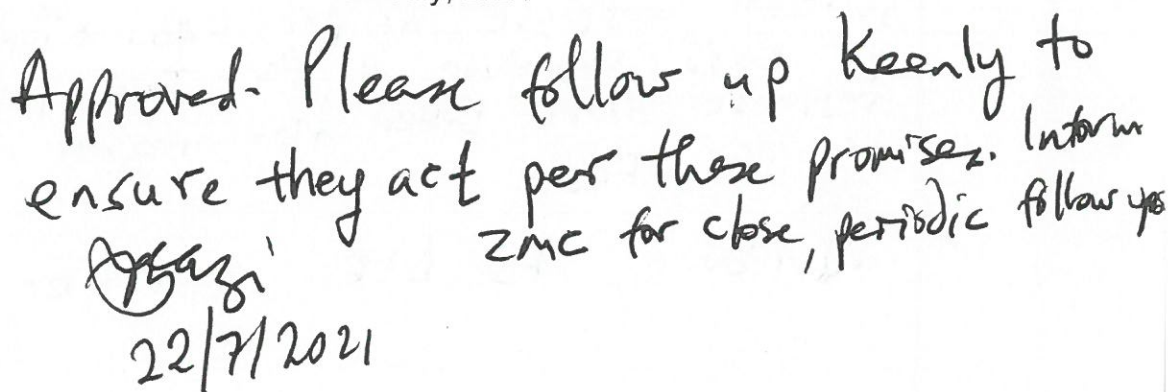 Approved. Please follow up Keenly to
ensure they act per these promises. Inform
ZMC for close, periodic follow ups
22/7/2021